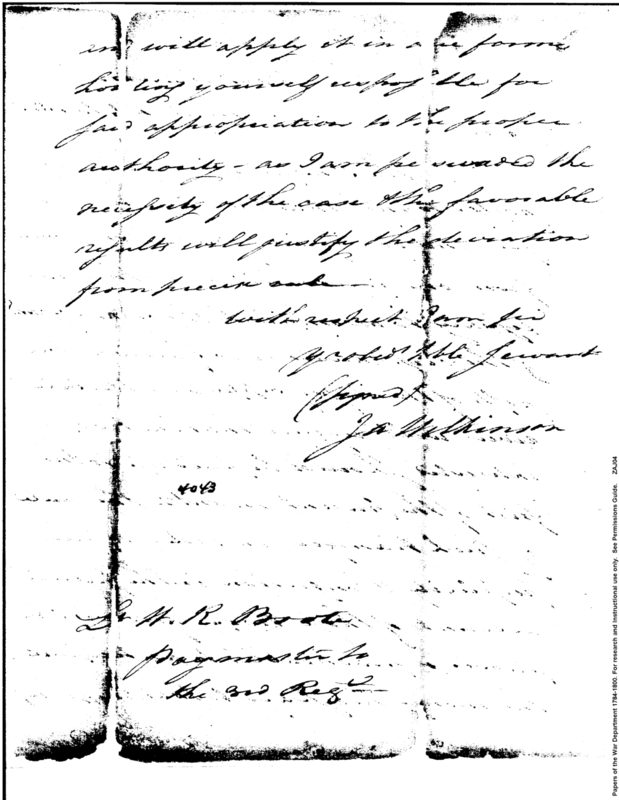 and will apply it in
yourself responsible for
said appropriation to the proper
authority – as I am persuaded the
necessity of the case & the favorable
results will justify the deviation
from precise rule –
with respect I am Sir
yr obed hble servant
(signed)
Ja Wilkinson
4043
Lt W. R. Boote
paymaster to
the 3rd Regt
Papers of the War Department 1784-1800. For research and instructional use only. See Permissions Guide. ZAJ04